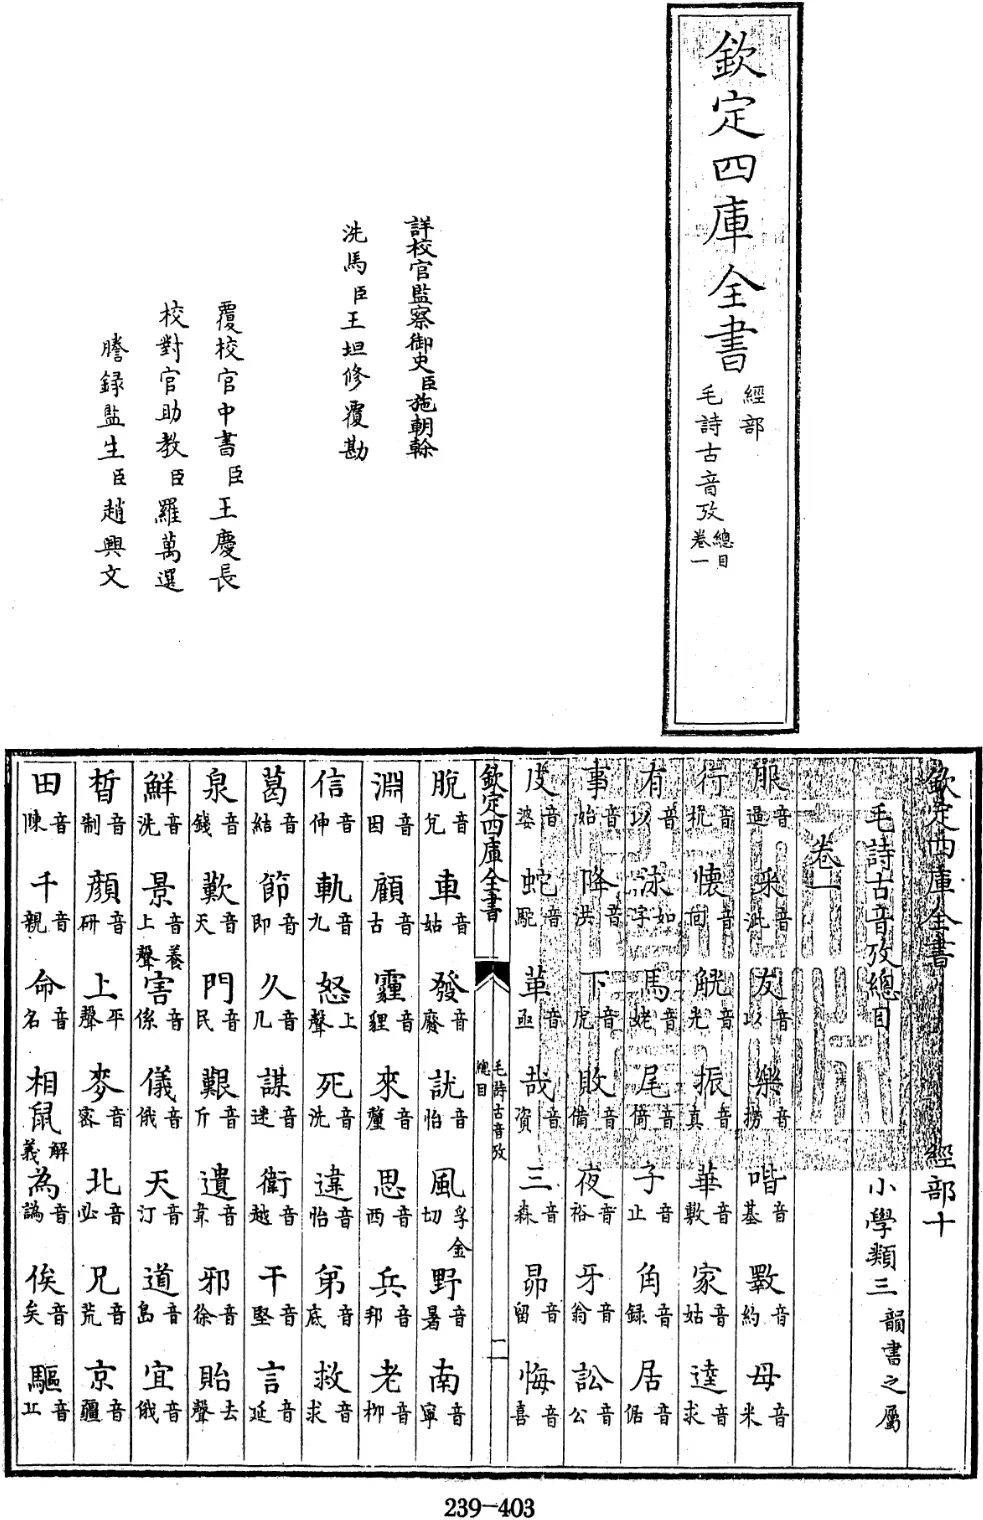 欽定四庫全書
經部
毛詩古音攷
總目
卷一
詳校官監察御史臣施朝榦
洗馬臣王坦修覆勘
覆校官中書臣王慶長
校對官助教臣羅萬選
謄録監生臣趙興文
欽定四庫全書 經部十
毛詩古音攷總目 小學類三 韻書之屬
卷一
服 音逼 采 音泚 友 音以 樂 音撈 喈 音基 斁 音約 母 音米
行 音杭 懷 音回 觥 音光 振 音真 華 音敷 家 音姑 逵 音求
有 音以 泳 如字 馬 音姥 尾 音倚 子 音止 角 音録 居 音倨
事 音始 降 音洪 下 音虎 敗 音備 夜 音裕 牙 音翁 訟 音公
皮 音婆 蛇 音駝 革 音亟 哉 音資 三 音森 昴 音留 悔 音喜
欽定四庫全書
毛詩古音攷
總目
二
脫 音兊 車 音姑 發 音廢 訧 音怡 風 孚金切 野 音暑 南 音寧
淵 音因 顧 音古 霾 音貍 來 音釐 思 音西 兵 音邦 老 音柳
信 音伸 軌 音九 怒 上聲 死 音洗 違 音怡 弟 音底 救 音求
葛 音結 節 音即 久 音几 謀 音迷 衛 音越 干 音堅 言 音延
泉 音錢 歎 音天 門 音民 艱 音斤 遺 音韋 邪 音徐 貽 去聲
鮮 音洗 景 音養上聲 害 音係 儀 音俄 天 音汀 道 音島 宜 音俄
晳 音制 顏 音研 上 平聲 麥 音密 北 音必 兄 音荒 京 音疆
田 音陳 千 音親 命 音名 相鼠 解義 為 音譌 俟 音矣 驅 音丘
239-403